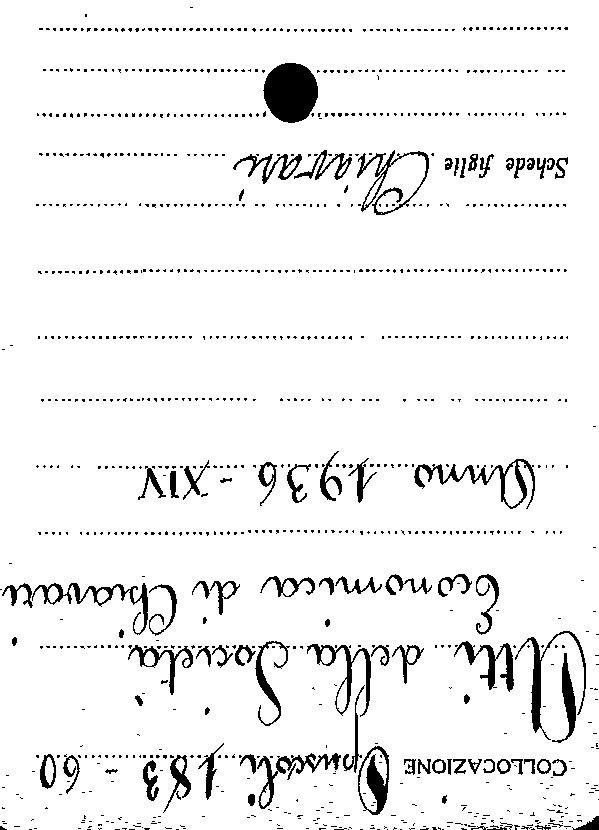 COLLOCAZIONE Opuscoli 183 - 60
Atti della Società
Economica di Chiavari.
Anno 1936 - XIV
Schede figlie Chiavari